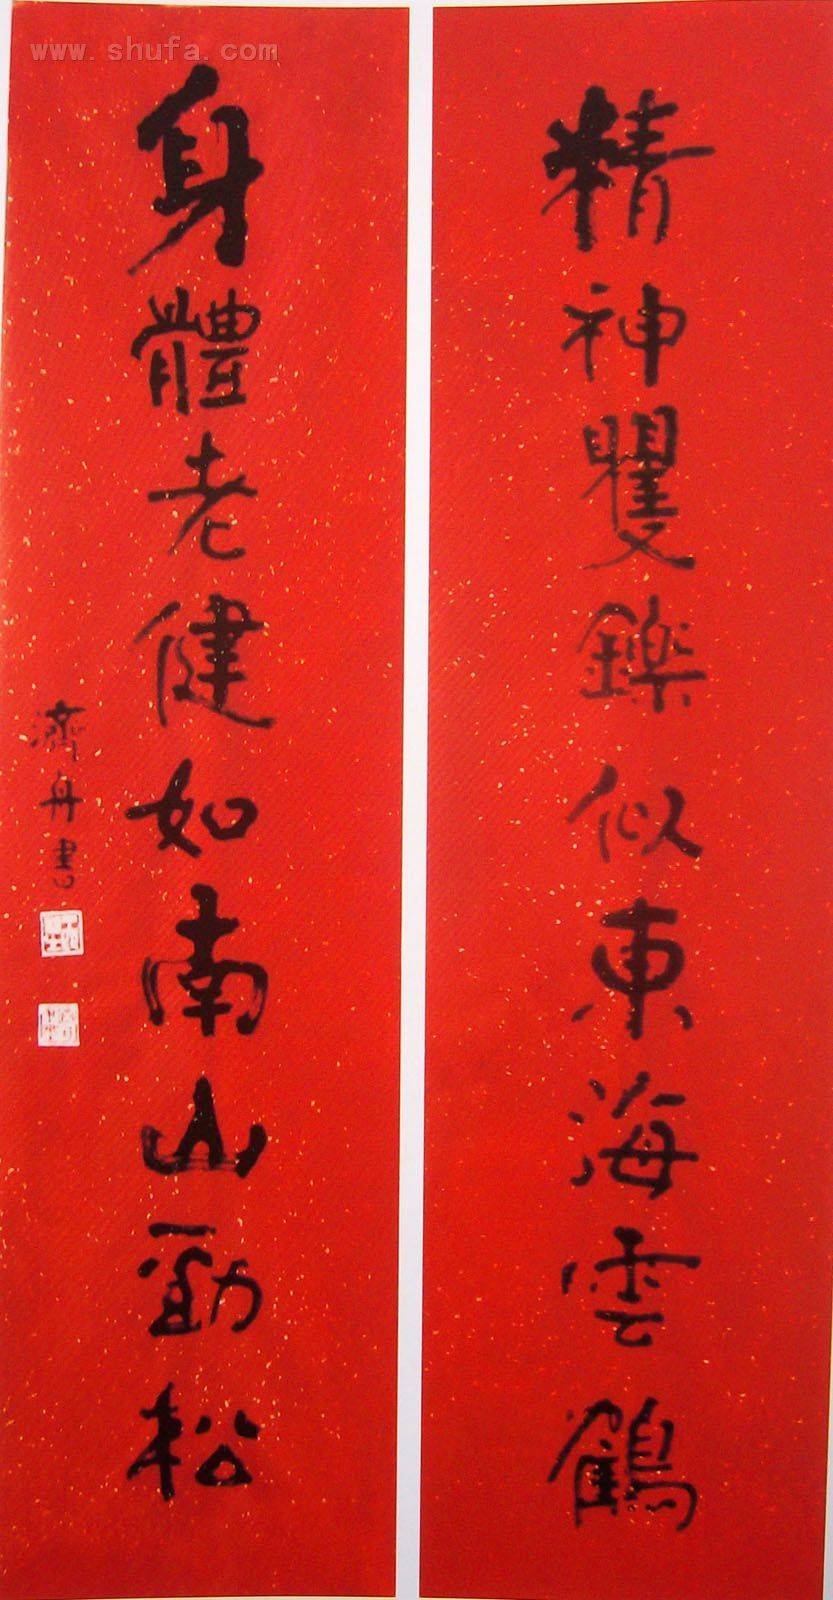 www.shufa.com
精神矍鑠似東海雲鶴
身體老健如南山勁松
濟舟書